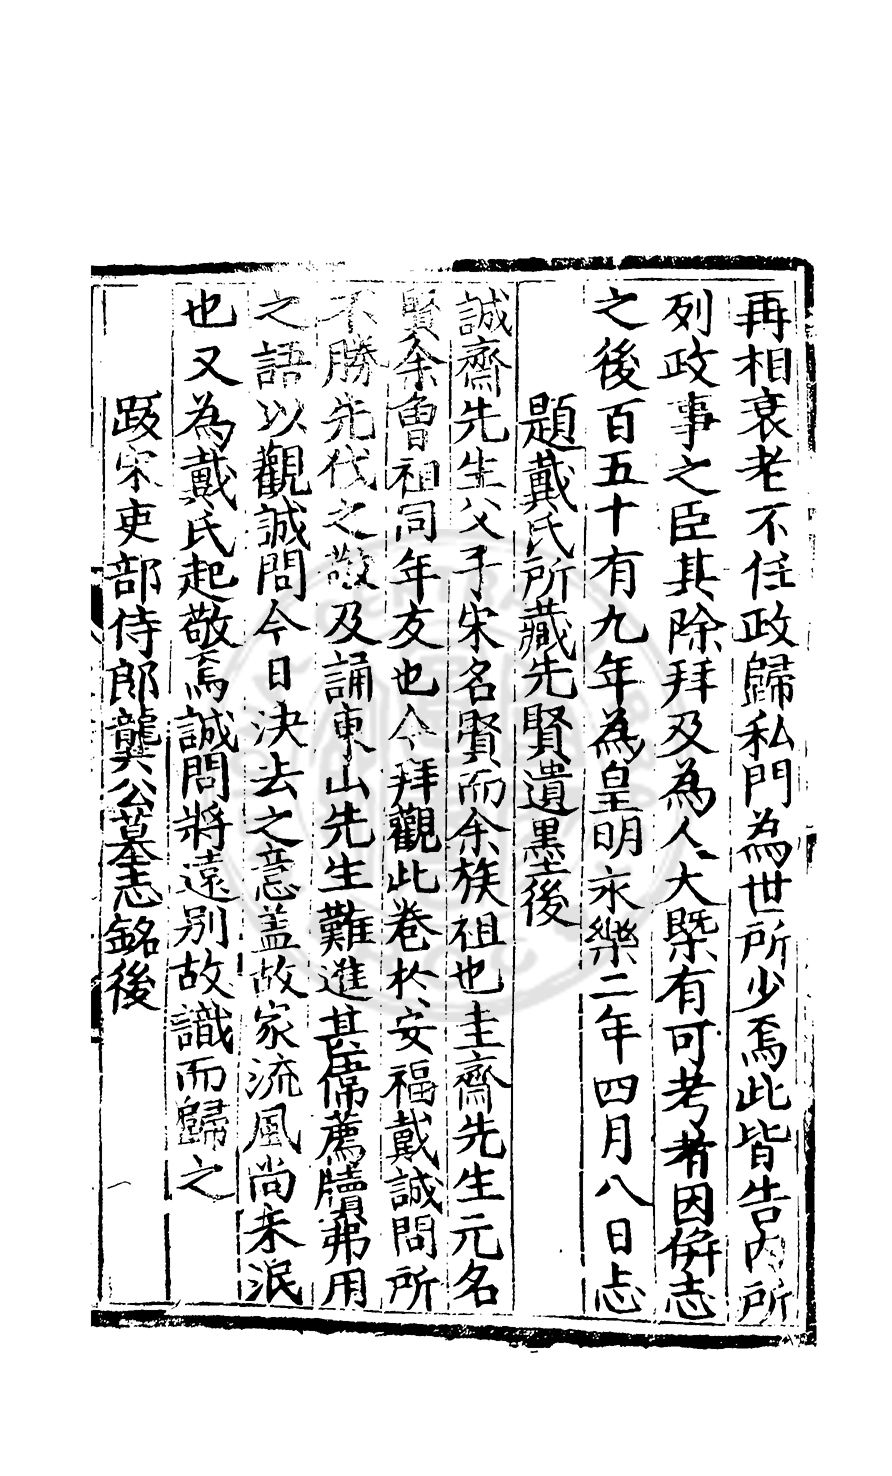 再相衰老不任政歸私門為世所少焉此皆告內所
列政事之臣其除拜及為人大槩有可考者因倂志
之後百五十有九年為皇明永樂二年四月八日志
題戴氏所藏先賢遺墨後
誠齋先生父子宋名賢而余族祖也圭齋先生元名
賢余魯祖同年友也今拜觀此卷於安福戴誠問所
不勝先代之敬及誦東山先生難進甚席薦牘弗用
之語以觀誠問今日決去之意盖故家流風尚未泯
也又為戴氏起敬焉誠問將遠別故識而歸之
跋宋吏部侍郎龔公墓志銘後